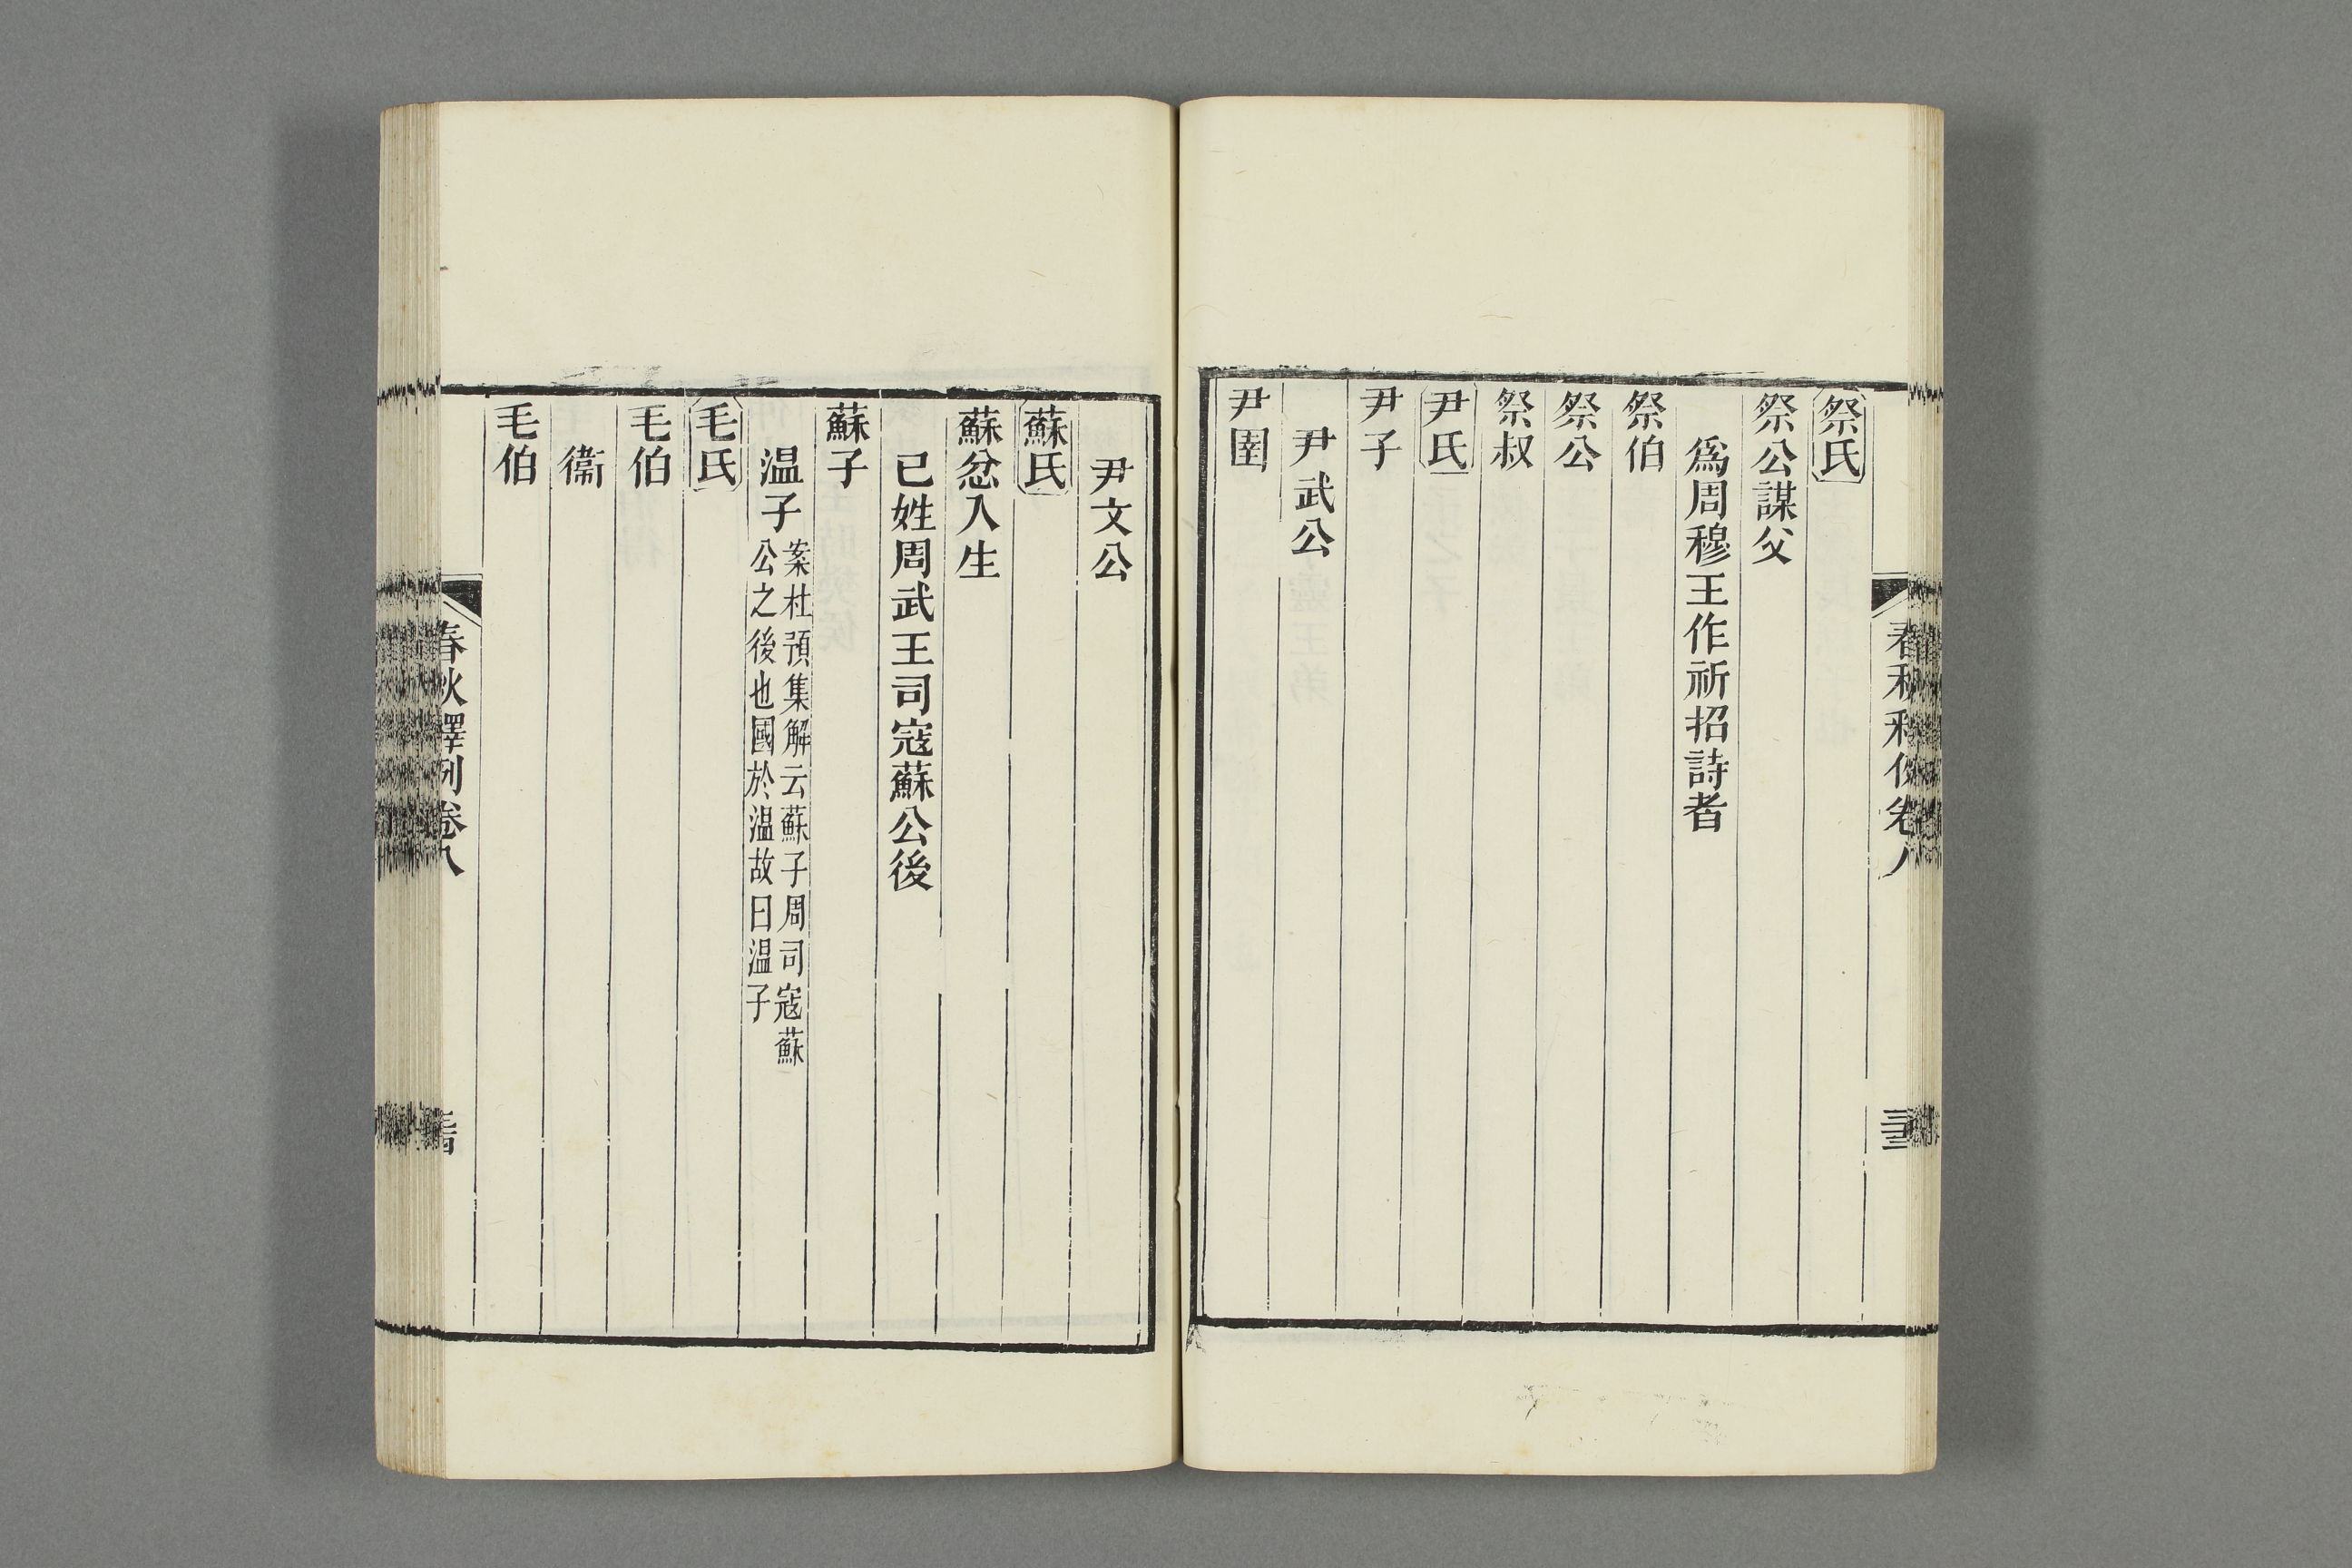 祭氏
祭公謀父
爲周穆王作祈招詩者
祭伯
祭公
祭叔
尹氏
尹子
尹武公
尹圉
尹文公
蘇氏
蘇忿入生
已姓周武王司寇蘇公後
蘇子
温子案杜預集解云蘇子周司寇蘇
公之後也國於温故曰温子
毛氏
毛伯
衞
毛伯
春秋釋例卷八